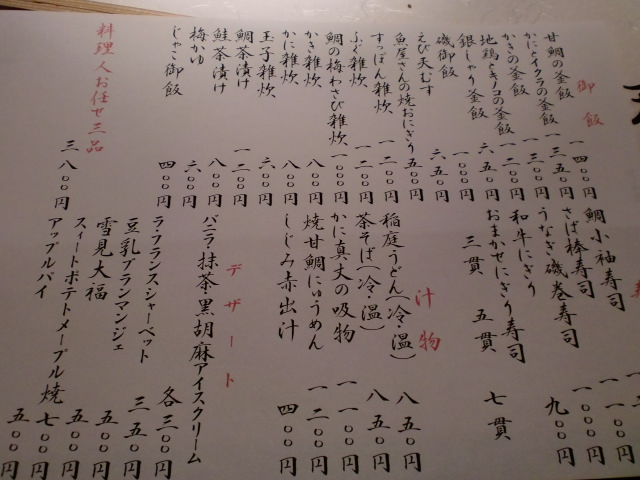 御飯
甘鯛の釜飯 一四〇〇円
かにとイクラの釜飯 一三五〇円
かきの釜飯 一三〇〇円
地鶏ときノコの釜飯 一二〇〇円
銀しゃり釜飯 六五〇円
磯御飯 一〇〇〇円
えび天むす 六五〇円
魚屋さんの焼おにぎり 五〇〇円
すっぽん雑炊 一二〇〇円
ふぐ雑炊 一二〇〇円
鯛の梅わさび雑炊 一〇〇〇円
かき雑炊 八〇〇円
かに雑炊 八〇〇円
玉子雑炊 六〇〇円
鯛茶漬け 一二〇〇円
鮭茶漬け 八〇〇円
梅かゆ 六〇〇円
じゃこ御飯 四〇〇円
料理人お任せ三品
三八〇〇円
鯛小袖寿司
さば棒寿司
うなぎ磯巻寿司
和牛にぎり 九〇〇円
おまかせにぎり寿司
三貫 五貫 七貫
汁物
稲庭うどん(冷・温) 八五〇円
茶そば(冷・温) 八五〇円
かに真丈の吸物 一一〇〇円
焼甘鯛にゅうめん 一二〇〇円
しじみ赤出汁 四〇〇円
デザート
バニラ・抹茶・黒胡麻アイスクリーム
各三〇〇円
ラ・フランスシャーベット 三五〇円
豆乳ブランマンジェ 五〇〇円
雪見大福 五〇〇円
スィートポテトメープル焼 七〇〇円
アップルパイ 五〇〇円